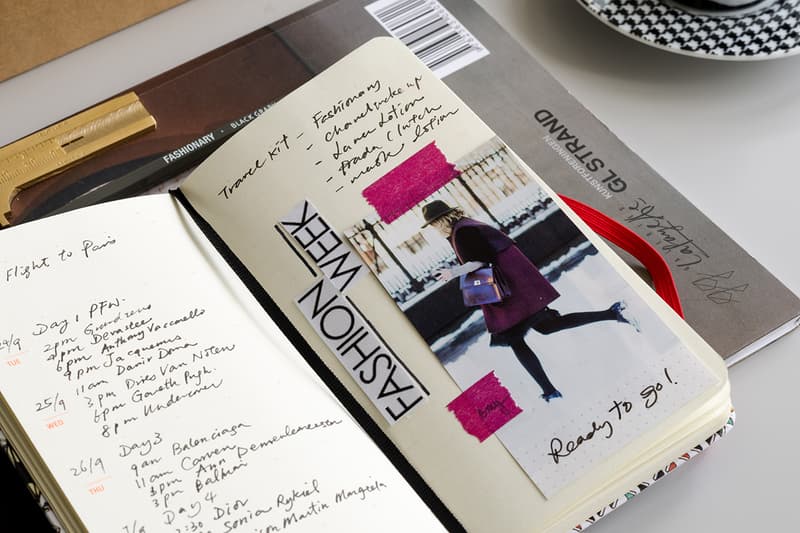 Flight to Paris
Day 1 PFW.
24/9
TUE
2pm
4pm Devastee
6pm Anthony Vaccarello
9pm Jacquemus
25/9
WED
11am Damir Doma
3pm Dries Van Noten
6pm Gareth Pugh.
8pm Undercover
26/9
THU
Day 3
9am Balenciaga
11am Carven
3pm Ann Demeulemeester
3pm Balmain
Day 4
2:30 Dior
Sonia Rykiel
Martin Margiela
Travel Kit - Fashionary
- Chanel make up
- Laner Lotion
- Prada Clutch
- mask lotion
FASHION WEEK
Ready to go!
FASHIONARY • BLACK
KUNSTFORENINGEN
GL STRAND